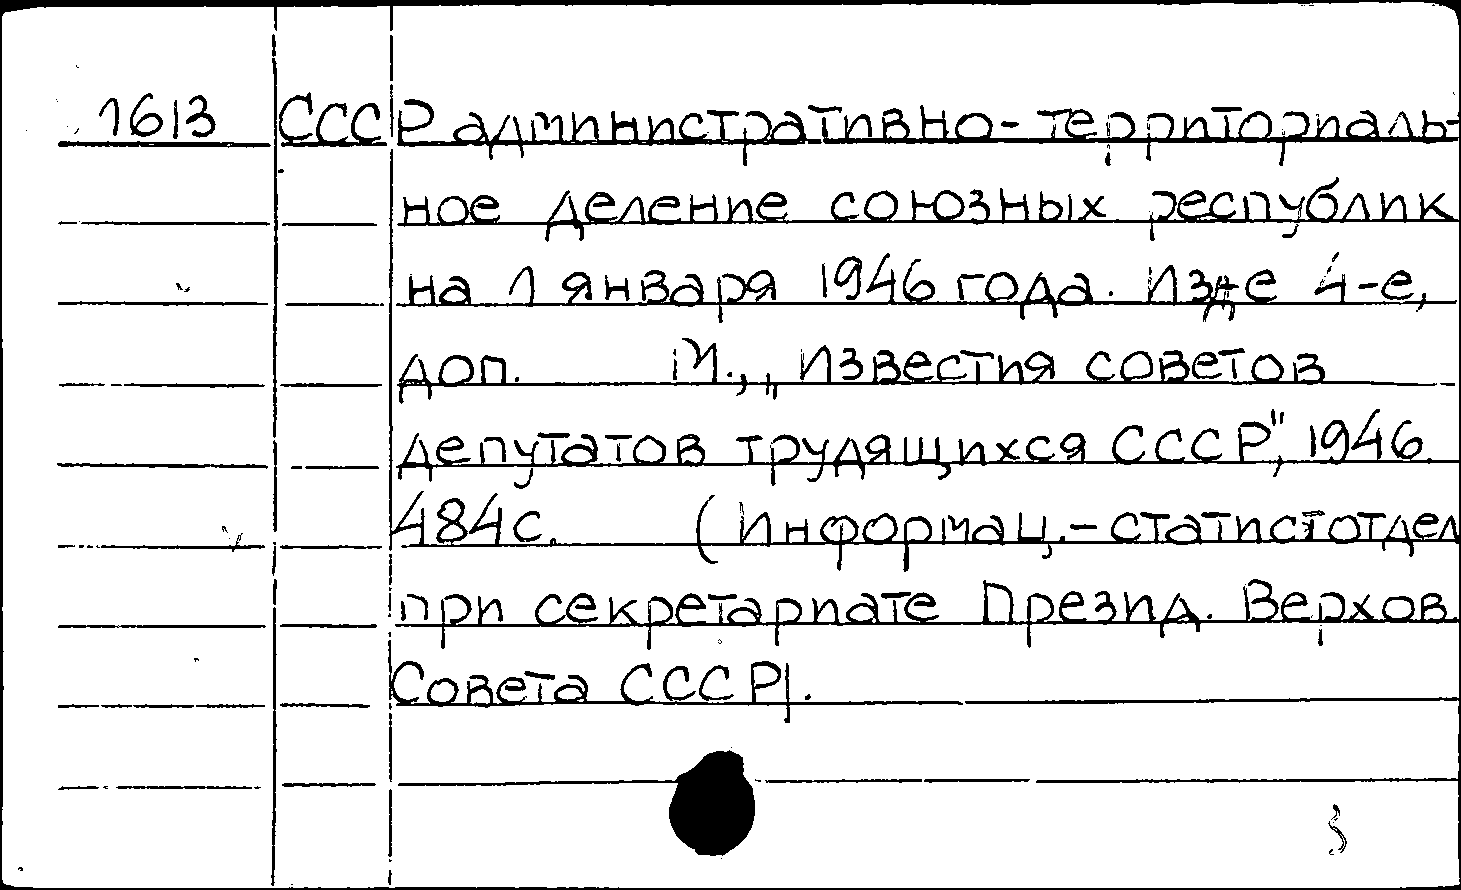 1613 СССР административно-территориаль-
ное деление союзных республик
на 1 января 1946 года. Изд-е 4-е,
доп. М., „Известия советов
депутатов трудящихся СССР", 1946.
484с. (Информац.-статист отдел
при секретариате Презид. Верхов.
Совета СССР).